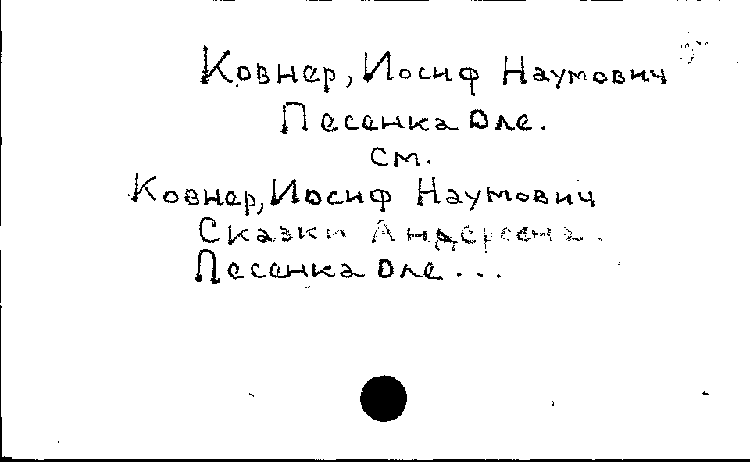 Ковнер, Иосиф Наумович
Песенка Оле.
см.
Ковнер, Иосиф Наумович
Сказки Андерсена.
Песенка Оле...